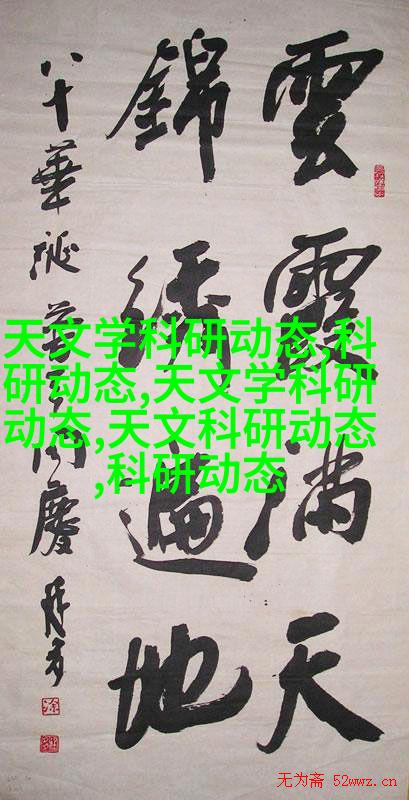 雲霞滿天
錦綉遍地
八十華誕普天同慶
天文学科研动态,科
研动态,天文学科研
动态,天文科研动态
,科研动态
无为斋 52wwz.cn